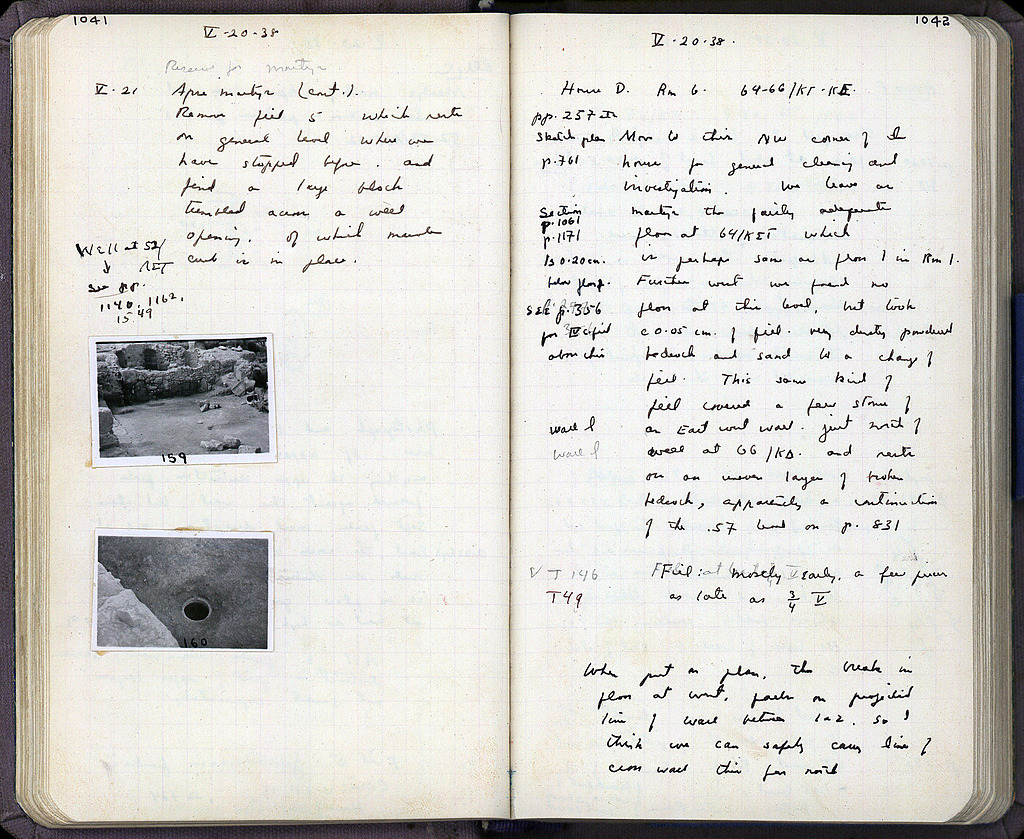 1041
V-20-38
V.21
(cont.).
Remove fill 5 which rests
on general level where we
have stopped before. and
find a large block
tumbled across a well
opening. of which
curb is in place.
Well at 52/
See pp.
1140, 1162,
1549
159
160
1042
V-20-38.
House D. Rm 6. 64-66/
pp. 257 ff
Sketch plan
p. 761
Move to this NW corner of the
house for general cleaning and
investigation. We leave as
the fairly adequate
floor at 64/ which
is perhaps same as floor 1 in Rm 1.
Further west we found no
floor at this level, but took
c 0.05 cm. of fill. very dusty powdered
bedrock and sand to a change of
fill. This same kind of
fill covered a few stones of
an East west wall. just south of
at 66/KΔ. and rests
on an uneven layer of broken
bedrock, apparently a continuation
of the .57 level on p. 831
Section
p. 1061
p. 1171
Is 0.20 cm.
below floor.
See p. 356
for fill
above this
wall
wall
V T 146
T49
Fill: mostly early. a few pieces
as late as 3/4 V
When put on plan, the break in
floor at west, falls on projected
line of wall between 1 & 2. So I
think we can safely carry line of
cross wall this far north